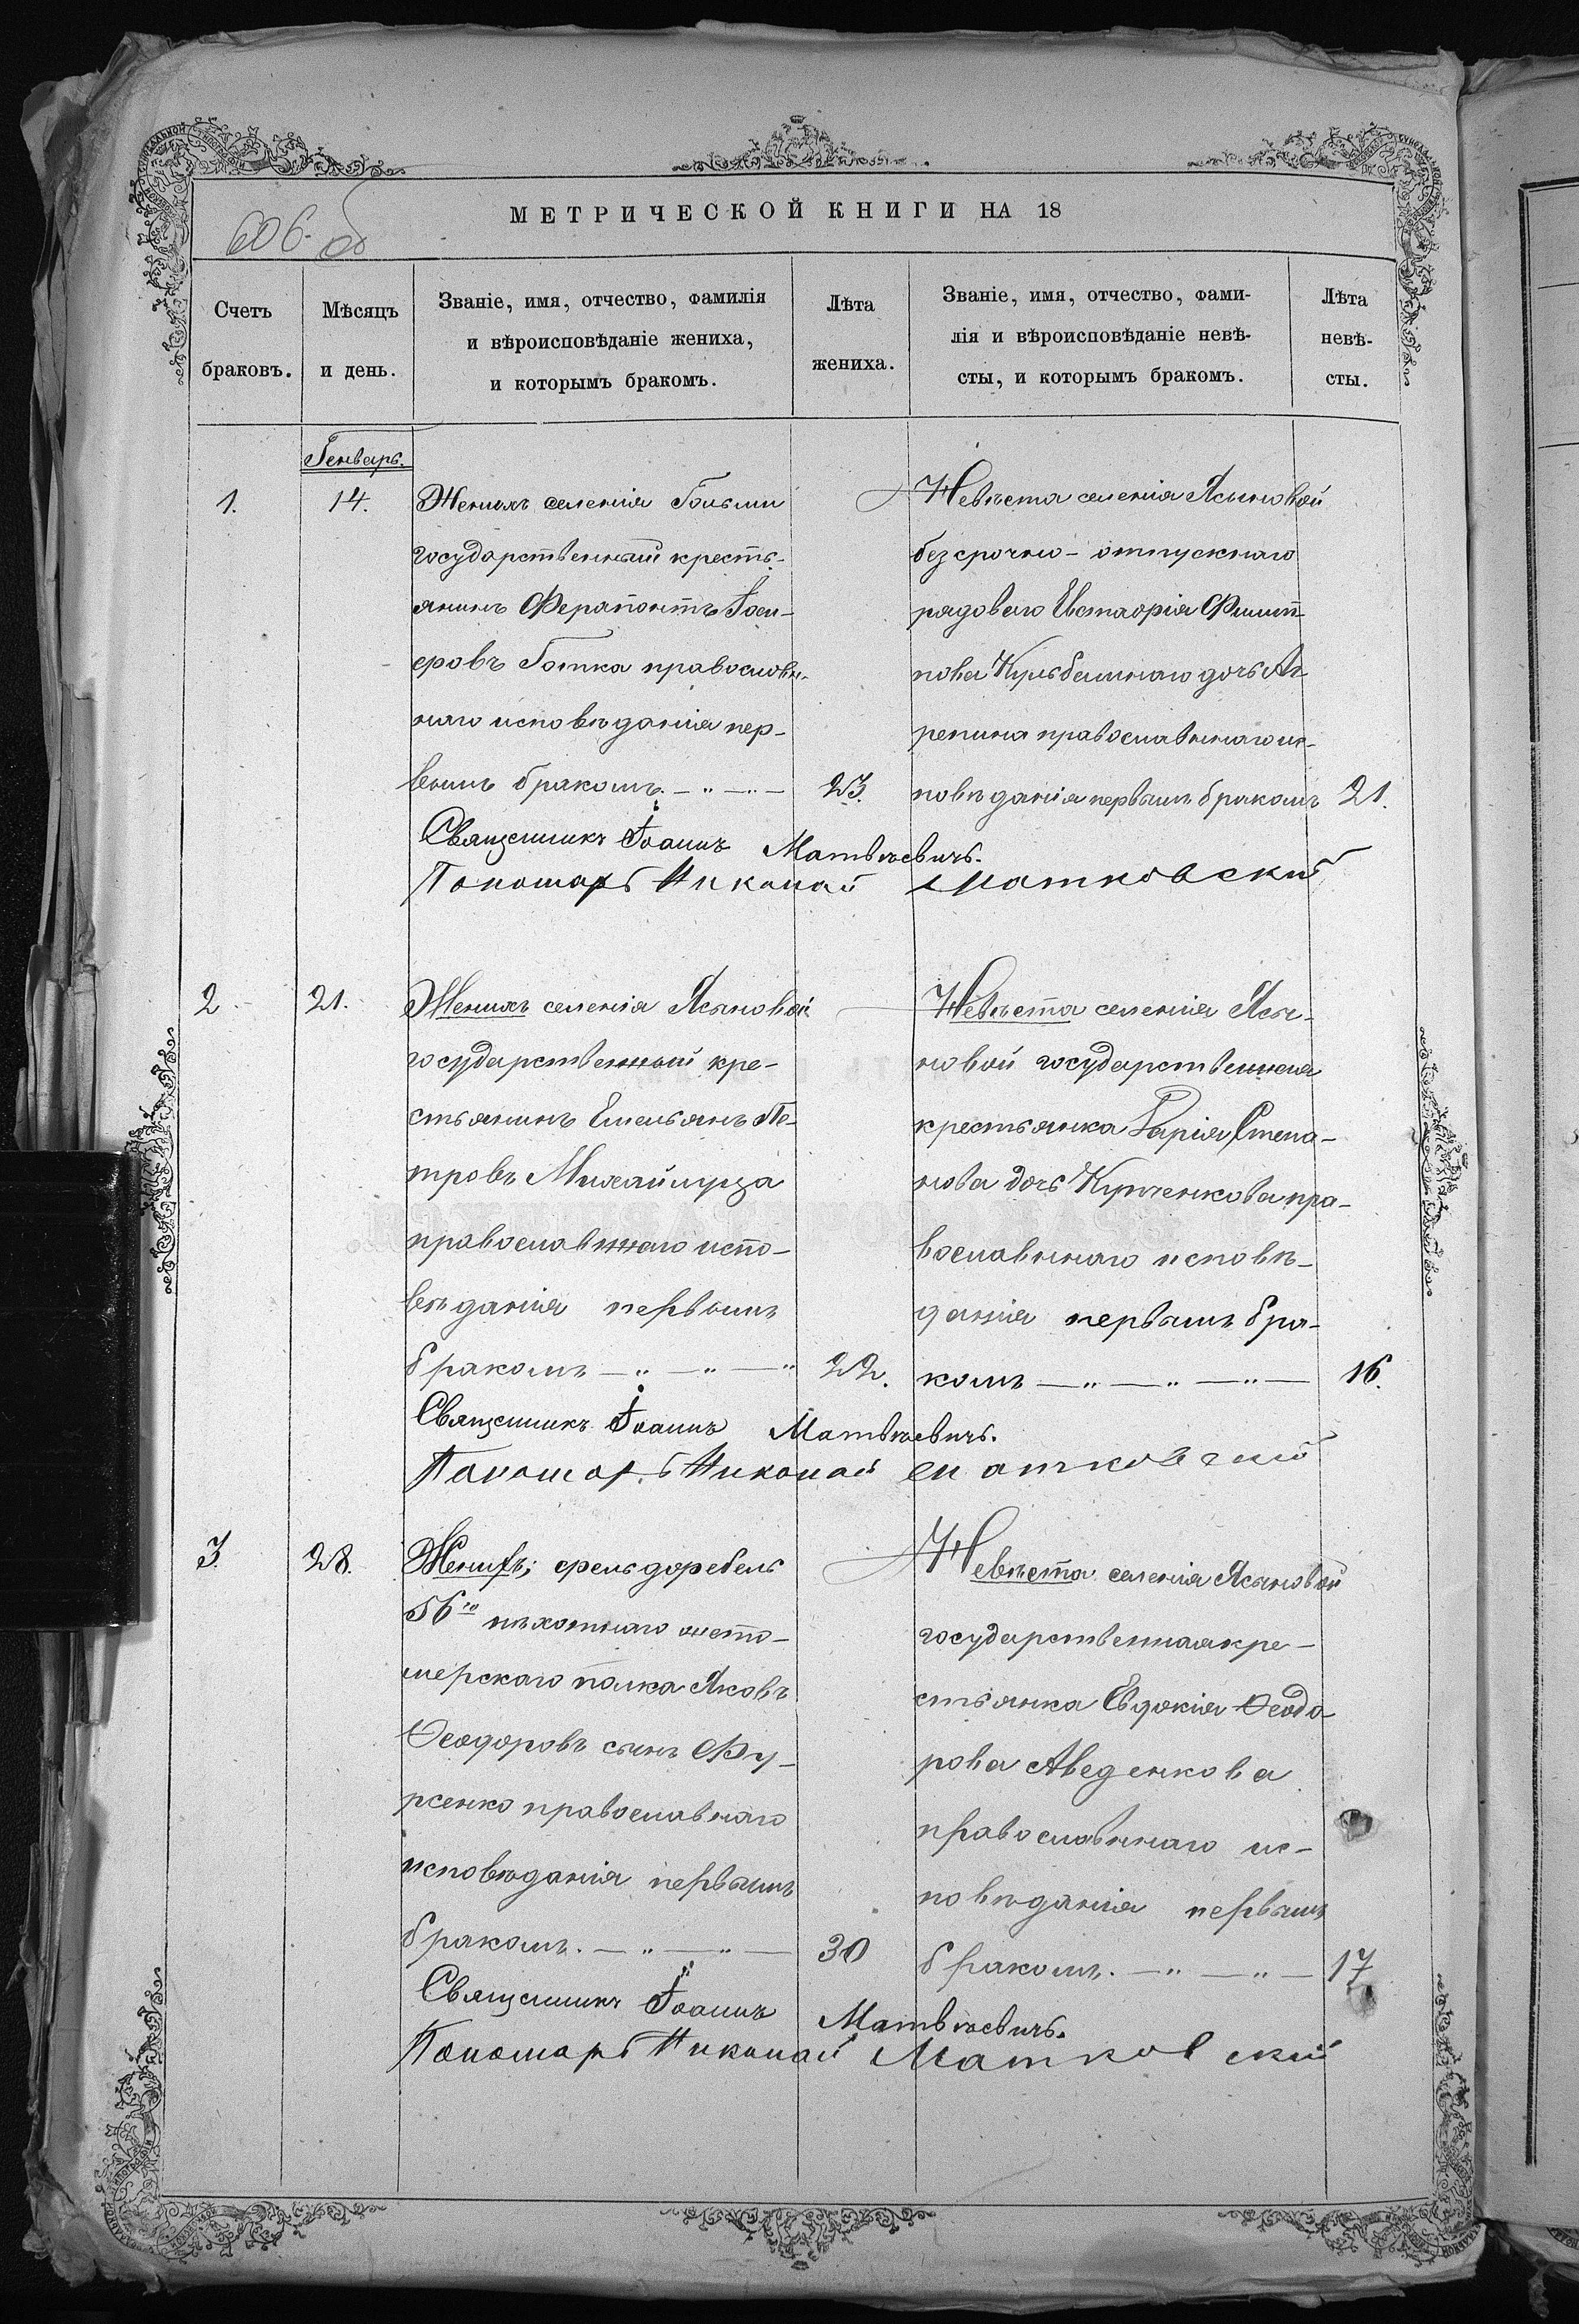 606 об
МЕТРИЧЕСКОЙ КНИГИ НА 18
Счетъ браковъ.
Мѣсяцъ и день.
Званіе, имя, отчество, фамилія
и вѣроисповѣданіе жениха,
и которымъ бракомъ.
Лѣта жениха.
Званіе, имя, отчество, фами-
лія и вѣроисповѣданіе невѣ-
сты, и которымъ бракомъ.
Лѣта невѣ-
сты.
Генварь.
1.
14.
Женихъ селенія Гольмы
государственный кресть-
янинъ Ферапонтъ Іоси-
фовъ Готка православн-
наго исповѣданія пер-
вымъ бракомъ
23.
Невѣста селенія Ясыновой
безсрочно-отпускнаго
рядового Евстафія Филип-
пова дочь Аг-
репина православннаго ис-
повѣданія первымъ бракомъ
21.
Священникъ Іоаннъ Матвѣевичъ.
Пономарь Николай Матковскій
2
21.
Женихъ селенія Ясыновой
государственный кре-
стьянинъ Емельянъ Пе-
тровъ Михайлуца
православннаго испо-
вѣданія первымъ
бракомъ
22.
Невѣста селенія Ясы-
новой государственная
крестьянка Дарія Степа-
нова дочь Купченкова пра-
вославннаго исповѣ-
данія первымъ бра-
комъ
16.
Священникъ Іоаннъ Матвѣевичъ.
Пономарь Николай Матковскій
3.
28.
Женихъ; фельдфебель
56го пѣхотнаго жито-
мерскаго полка Яковъ
Ѳеодоровъ сынъ Фу-
рсенко православнаго
исповѣданія первымъ
бракомъ.
30
Невѣста селенія Ясыновой
государственная кре-
стьянка Евдокія Ѳеодо-
рова Аведенкова
православннаго ис-
повѣданія первымъ
бракомъ.
17
Священникъ Іоаннъ Матвѣевичъ.
Пономарь Николай Матковскій